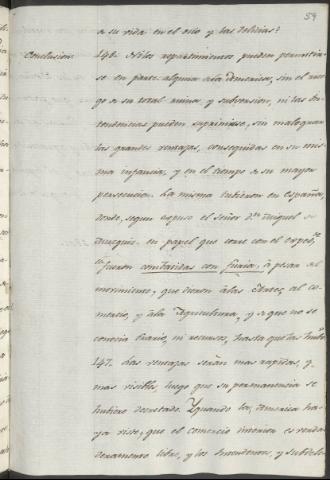 59
a su vida en el ocio y las delicias?
Conclusion
146. Ni los repartimientos pueden permitir-
se en parte alguna de la America, sin el ries-
go de su total ruina y subversion, ni las In-
tendencias pueden suprimirse, sin malograr
las grandes ventajas, conseguidas en su mis-
ma infancia, y en el tiempo de su mayor
persecucion. La misma tubieron en España,
donde, segun expuso el Señor Dn. Miguel de
en papel que corre con el exped.te
fueron combatidas con furia, a pesar del
movimiento, que dieron à las Artes, al co-
mercio, y à la Agricultura, y de que no se
conocia Erario, ni recursos, hasta que las hubo.
147. Las ventajas serán mas rapidas, y
mas visibles, luego que su permanencia se
hubiere decretado. Y quando la America ha-
ya visto, que el comercio interior es verda-
deramente libre, y los Intendentes, y Subdele-